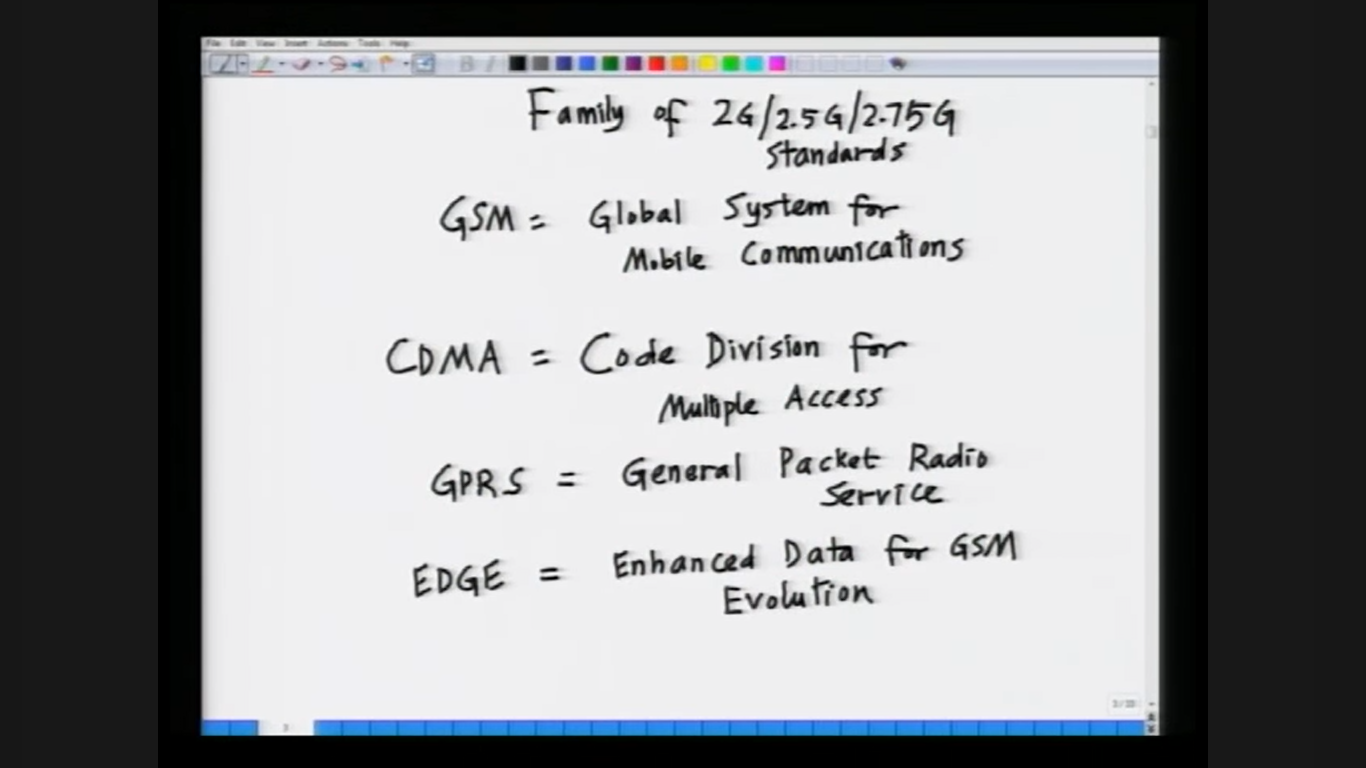 File Edit View Insert Actions Tools Help
Family of 2G/2.5G/2.75G
Standards
GSM = Global System for
Mobile Communications
CDMA = Code Division for
Multiple Access
GPRS = General Packet Radio
Service
EDGE = Enhanced Data for GSM
Evolution